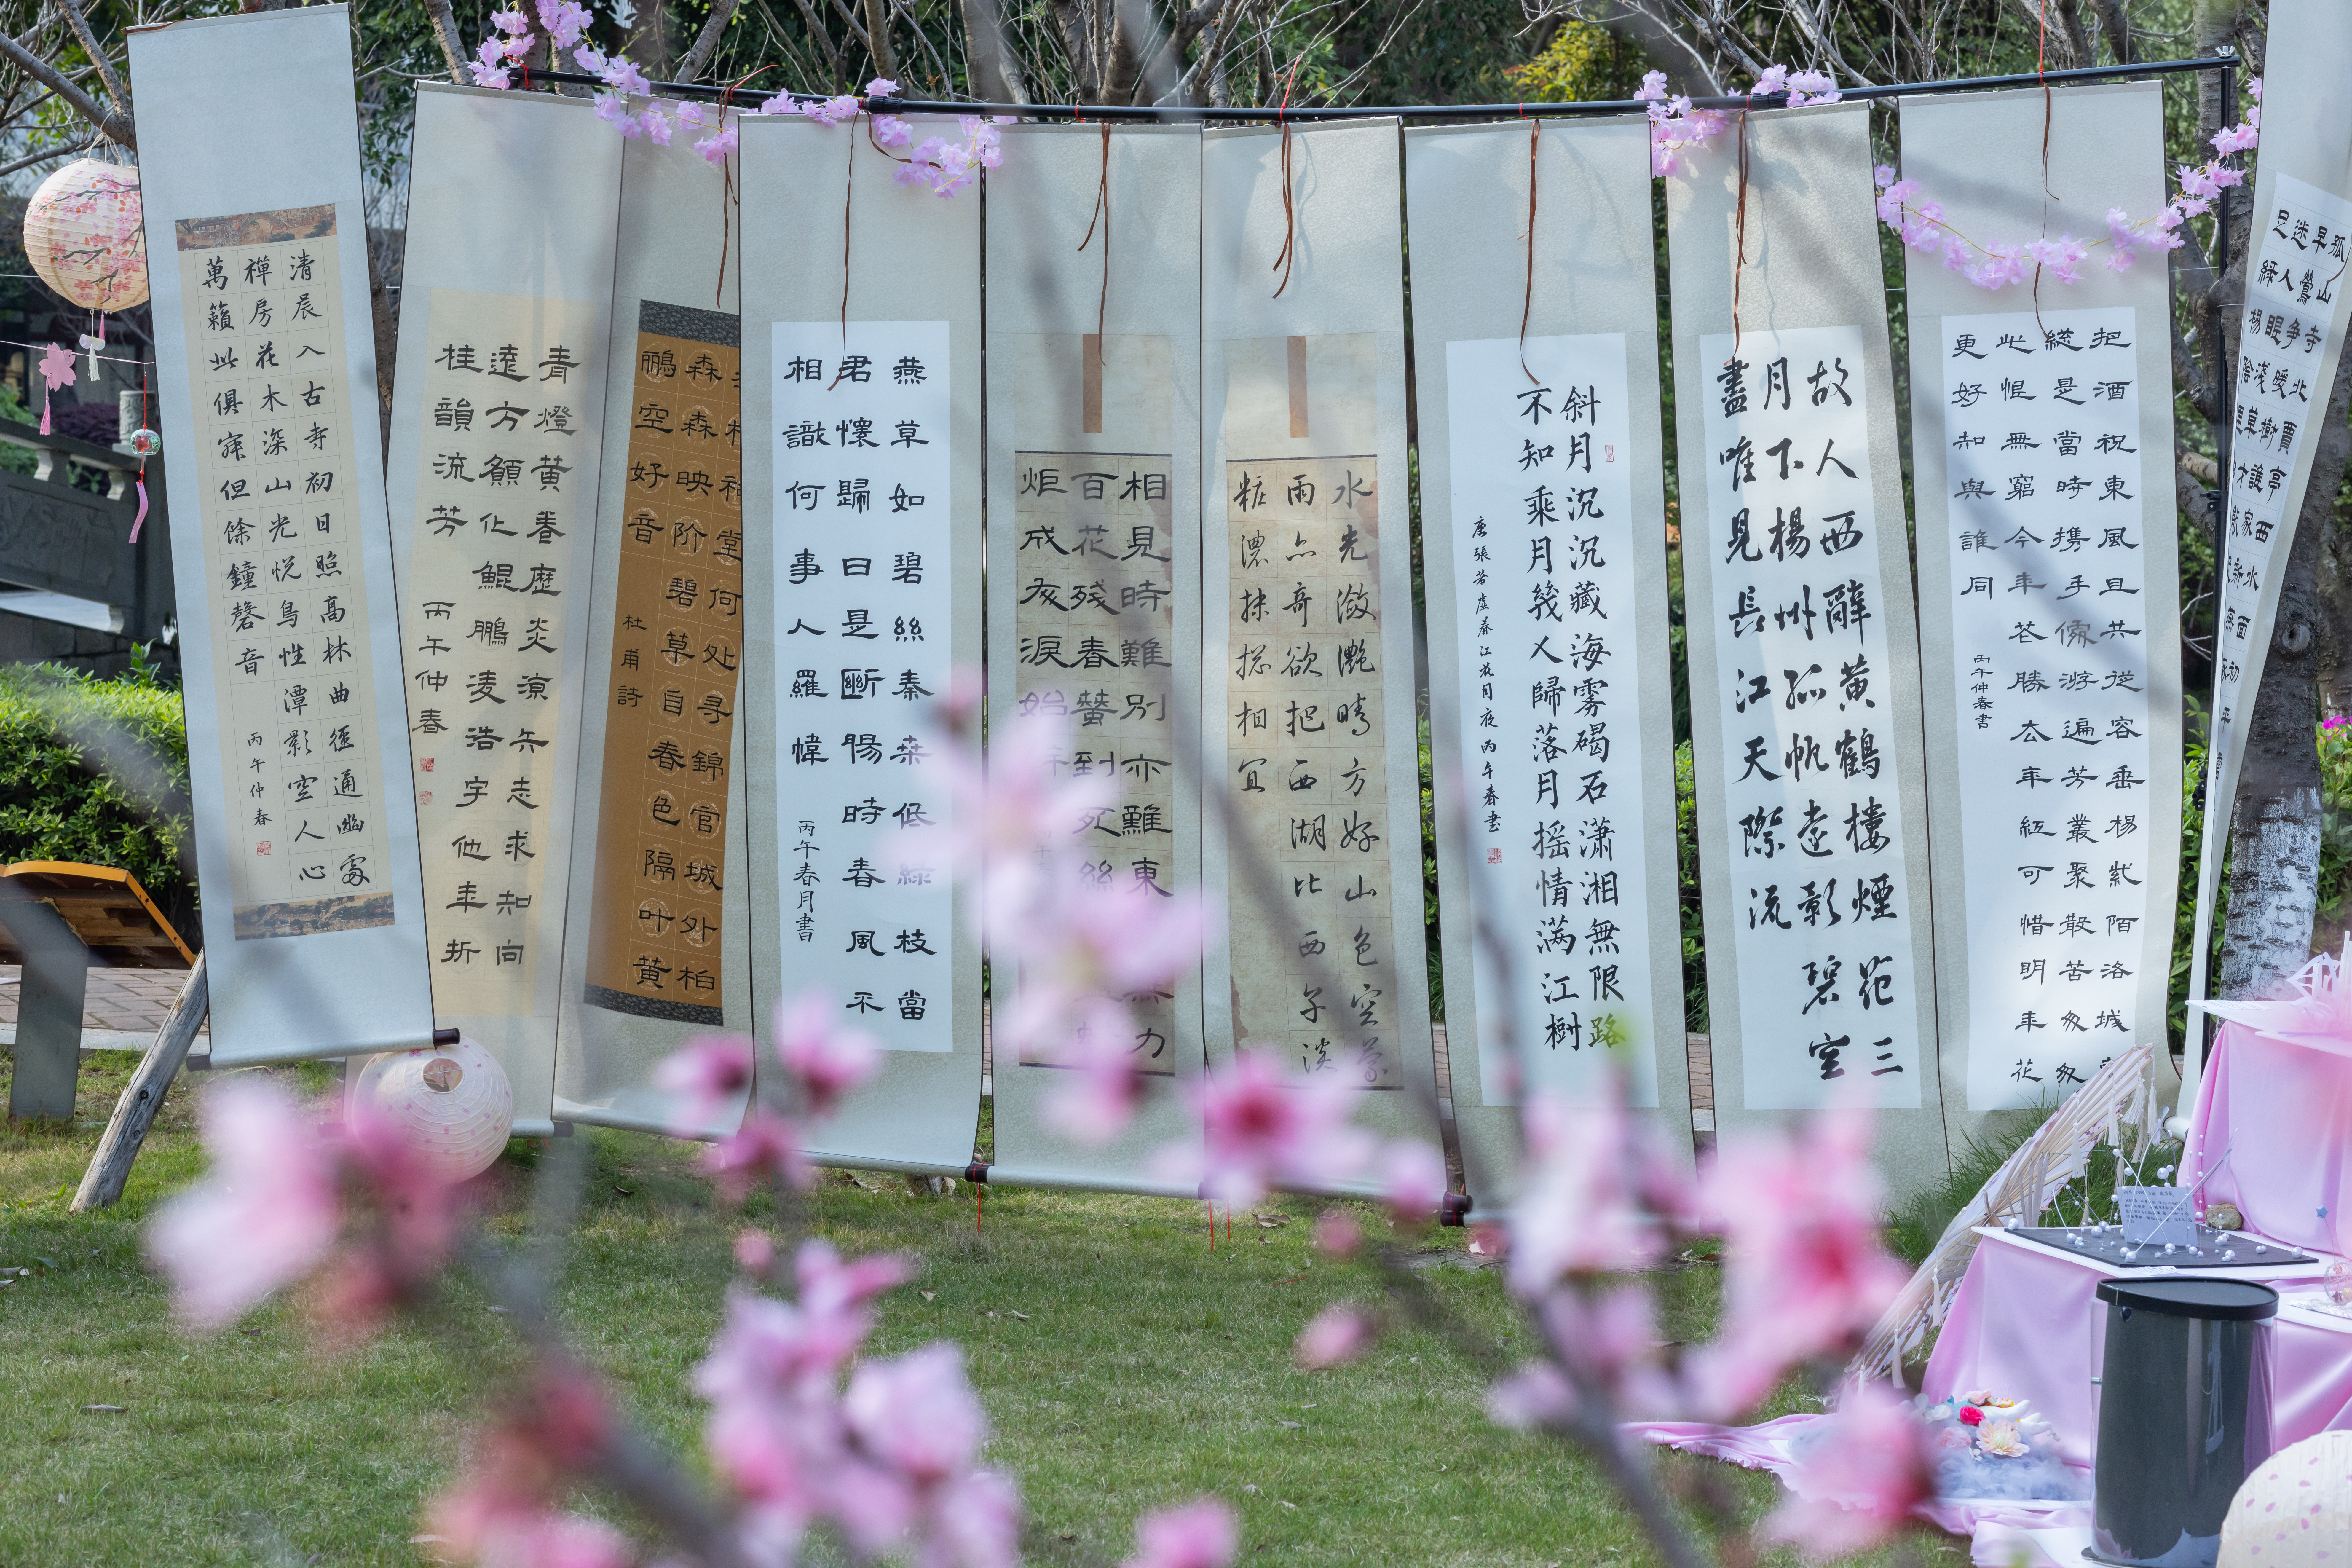 清晨入古寺初日照高林曲徑通幽處
禪房花木深山光悅鳥性潭影空人心
萬籟此俱寂但餘鐘磬音
丙午仲春
青燈黃卷歷炎涼矢志求知向
遠方願化鯤鵬凌浩宇他年折
桂韻流芳
丙午仲春
祠堂何处寻錦官城外柏
森森映阶碧草自春色隔叶黄
鸝空好音
杜甫詩
燕草如碧絲秦桑低綠枝當
君懷歸日是斷腸時春風不
相識何事人羅幃
丙午春月書
相見時難別亦難東無力
百花残春蠶到死絲
炬成灰淚始
水光瀲灧晴方好山色空蒙
雨亦奇欲把西湖比西子淡
粧濃抹總相宜
斜月沉沉藏海雾碣石潇湘無限路
不知乘月幾人歸落月摇情满江樹
唐張若虛春江花月夜丙午春书
故人西辭黃鶴樓煙花三
月下楊州孤帆遠影碧空
盡唯見長江天際流
把酒祝東風且共從容垂楊紫陌洛城
總是當時携手處游遍芳叢聚散苦匆匆
此恨無窮今年花勝去年紅可惜明年花
更好知與誰同
丙午仲春書
孤山寺北賈亭西水面初
早鶯争暖樹誰家新
迷人眼淺草才
足綠楊陰里